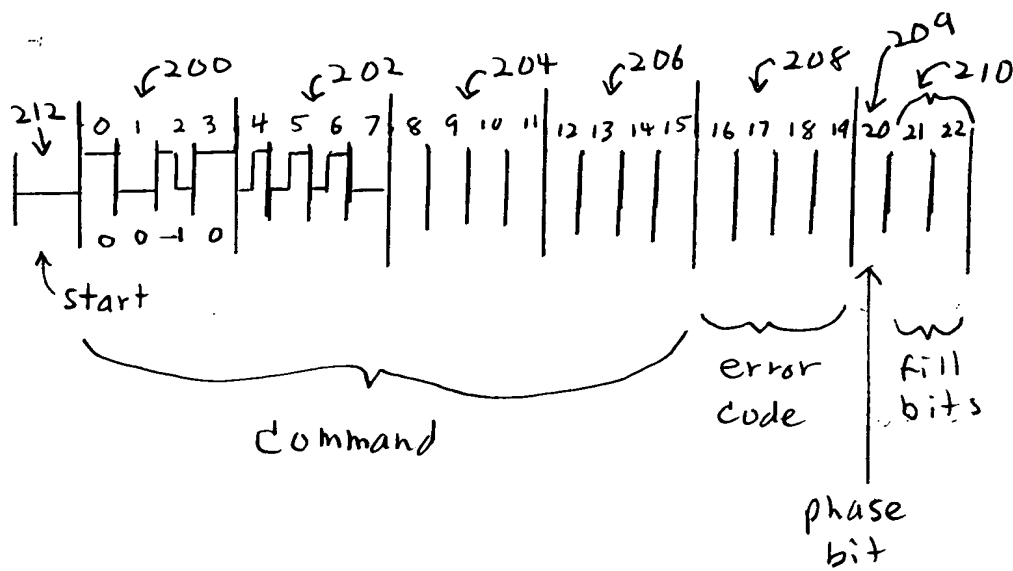 200 202 204 206 208 209 210
212 0 1 2 3 4 5 6 7 8 9 10 11 12 13 14 15 16 17 18 19 20 21 22
0 0 1 0
start
command
error code
fill bits
phase bit